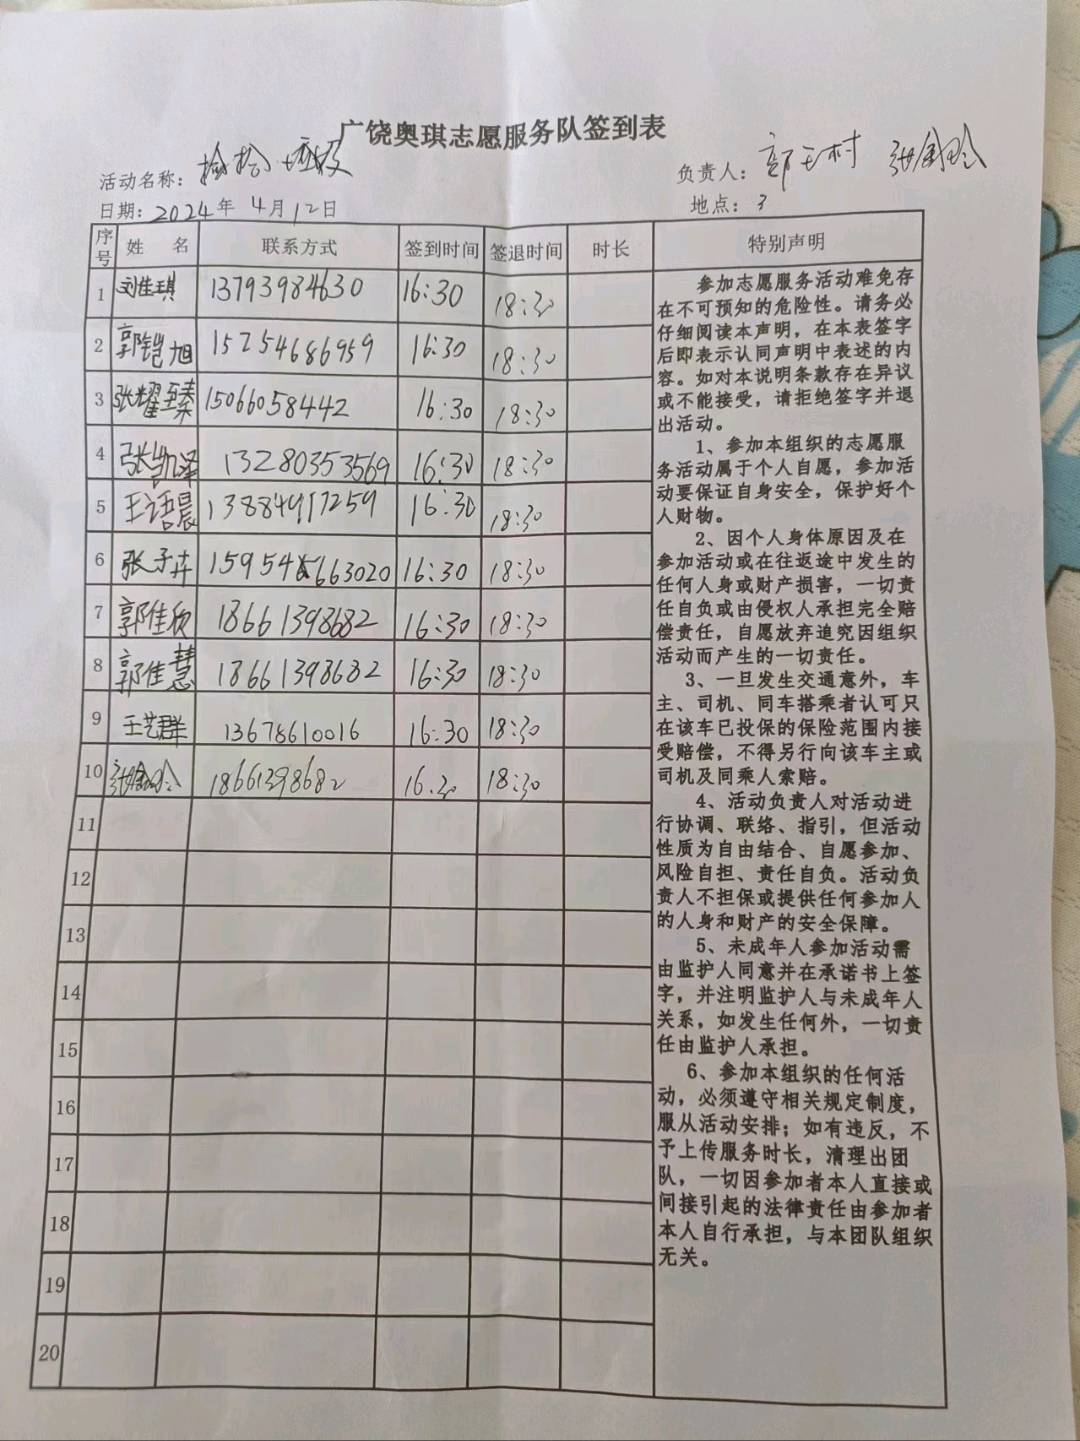 广饶奥琪志愿服务队签到表
活动名称：捡拾垃圾 负责人：郭王村 张金玲
日期：2024年4月12日 地点：3
序号 姓名 联系方式 签到时间 签退时间 时长 特别声明
1 刘佳琪 13793984630 16:30 18:30
2 郭铠旭 15254686959 16:30 18:30
3 张耀臻 15066058442 16:30 18:30
4 张凯泽 13280353569 16:30 18:30
5 王语晨 13884917259 16:30 18:30
6 张子卉 159546663020 16:30 18:30
7 郭佳欣 18661398682 16:30 18:30
8 郭佳慧 18661398682 16:30 18:30
9 王艺群 13678610016 16:30 18:30
10 张金玲 18661398682 16:30 18:30
11
12
13
14
15
16
17
18
19
20
参加志愿服务活动难免存
在不可预知的危险性。请务必
仔细阅读本声明，在本表签字
后即表示认同声明中表述的内
容。如对本说明条款存在异议
或不能接受，请拒绝签字并退
出活动。
1、参加本组织的志愿服
务活动属于个人自愿，参加活
动要保证自身安全，保护好个
人财物。
2、因个人身体原因及在
参加活动或在往返途中发生的
任何人身或财产损害，一切责
任自负或由侵权人承担完全赔
偿责任，自愿放弃追究因组织
活动而产生的一切责任。
3、一旦发生交通意外，车
主、司机、同车搭乘者认可只
在该车已投保的保险范围内接
受赔偿，不得另行向该车主或
司机及同乘人索赔。
4、活动负责人对活动进
行协调、联络、指引，但活动
性质为自由结合、自愿参加、
风险自担、责任自负。活动负
责人不担保或提供任何参加人
的人身和财产的安全保障。
5、未成年人参加活动需
由监护人同意并在承诺书上签
字，并注明监护人与未成年人
关系，如发生任何外，一切责
任由监护人承担。
6、参加本组织的任何活
动，必须遵守相关规定制度，
服从活动安排；如有违反，不
予上传服务时长，清理出团
队，一切因参加者本人直接或
间接引起的法律责任由参加者
本人自行承担，与本团队组织
无关。